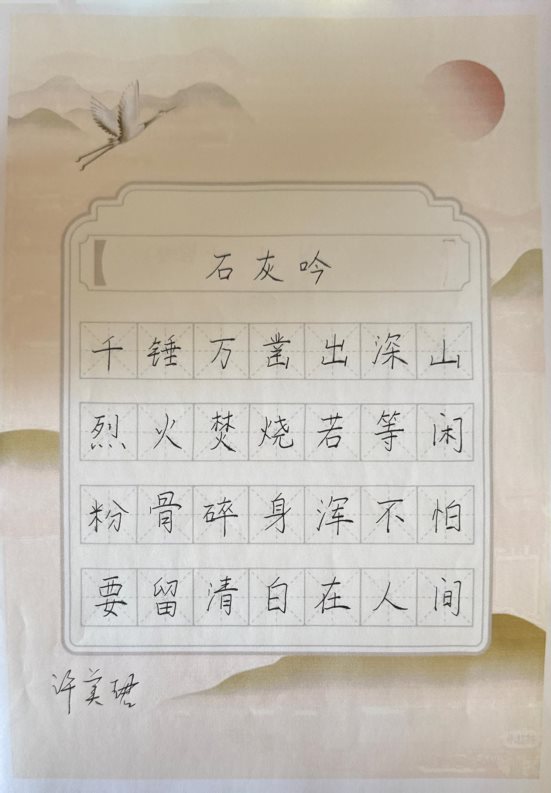 石灰吟
千锤万凿出深山
烈火焚烧若等闲
粉骨碎身浑不怕
要留清白在人间
许美珺